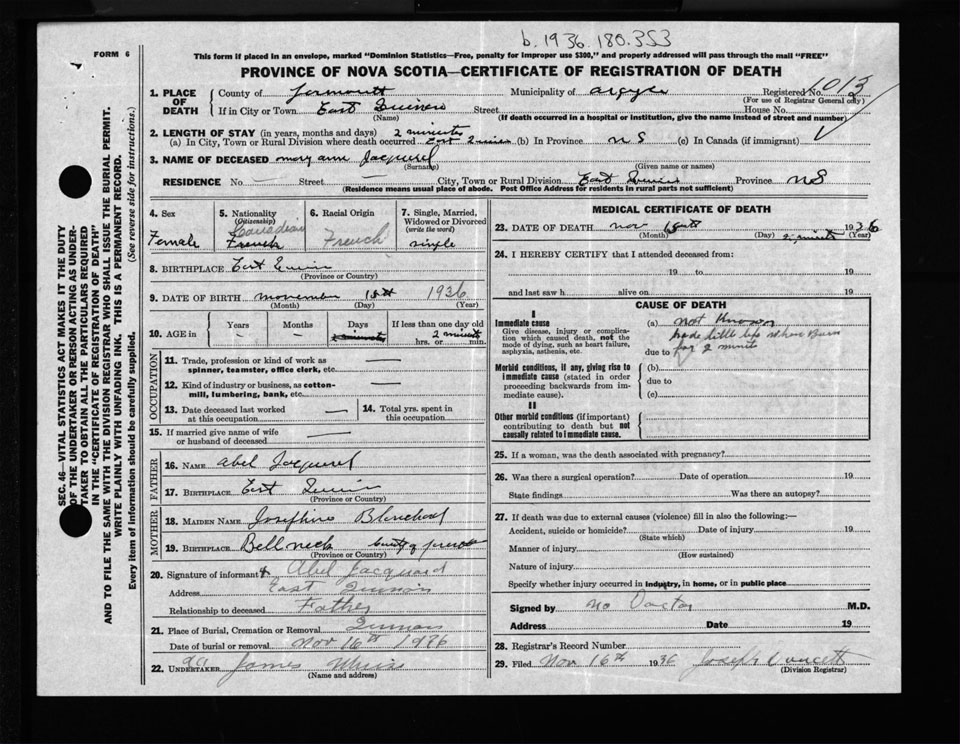 b. 1936. 180. 353
FORM 6
This form if placed in an envelope, marked "Dominion Statistics—Free, penalty for improper use $300," and properly addressed will pass through the mail "FREE"
PROVINCE OF NOVA SCOTIA—CERTIFICATE OF REGISTRATION OF DEATH
1013
1. PLACE OF DEATH County of Municipality of Argyle Registered No.
(For use of Registrar General only)
If in City or Town East Street House No.
(Name) (If death occurred in a hospital or institution, give the name instead of street and number)
2. LENGTH OF STAY (in years, months and days) 2 minutes
(a) In City, Town or Rural Division where death occurred East (b) In Province N S (c) In Canada (if immigrant)
3. NAME OF DECEASED Mary Ann
(Surname) (Given name or names)
RESIDENCE No. Street City, Town or Rural Division East Province NS
(Residence means usual place of abode. Post Office Address for residents in rural parts not sufficient)
SEC. 46—VITAL STATISTICS ACT MAKES IT THE DUTY
OF THE UNDERTAKER OR PERSON ACTING AS UNDER-
TAKER TO OBTAIN ALL THE PARTICULARS REQUIRED
IN THE "CERTIFICATE OF REGISTRATION OF DEATH"
AND TO FILE THE SAME WITH THE DIVISION REGISTRAR WHO SHALL ISSUE THE BURIAL PERMIT.
WRITE PLAINLY WITH UNFADING INK. THIS IS A PERMANENT RECORD.
Every item of information should be carefully supplied. (See reverse side for instructions.)
4. Sex
Female
5. Nationality
(Citizenship)
Canadian
French
6. Racial Origin
French
7. Single, Married,
Widowed or Divorced
(write the word)
single
8. BIRTHPLACE East
(Province or Country)
9. DATE OF BIRTH November 15th 1936
(Month) (Day) (Year)
10. AGE in Years Months Days If less than one day old
2 minutes
hrs. or min.
OCCUPATION
11. Trade, profession or kind of work as
spinner, teamster, office clerk, etc.
12. Kind of industry or business, as cotton-
mill, lumbering, bank, etc.
13. Date deceased last worked
at this occupation
14. Total yrs. spent in
this occupation
15. If married give name of wife
or husband of deceased
FATHER
16. NAME Abel
17. BIRTHPLACE East
(Province or Country)
MOTHER
18. MAIDEN NAME Josephine
19. BIRTHPLACE Bellneck county of
(Province or Country)
20. Signature of informant Abel Jacquard
Address East Quinan
Relationship to deceased Father
21. Place of Burial, Cremation or Removal Quinan
Date of burial or removal Nov 16th 1936
22. UNDERTAKER James
(Name and address)
MEDICAL CERTIFICATE OF DEATH
23. DATE OF DEATH Nov 15th 2 minutes 1936
(Month) (Day) (Year)
24. I HEREBY CERTIFY that I attended deceased from:
19 to 19
and last saw h alive on 19
CAUSE OF DEATH
I
Immediate cause
Give disease, injury or complica-
tion which caused death, not the
mode of dying, such as heart failure,
asphyxia, asthenia, etc.
(a) not known
had little life when Born
due to for 2 minute
Morbid conditions, if any, giving rise to
immediate cause (stated in order
proceeding backwards from im-
mediate cause).
(b)
due to
(c)
II
Other morbid conditions (if important)
contributing to death but not
causally related to immediate cause.
25. If a woman, was the death associated with pregnancy?
26. Was there a surgical operation? Date of operation 19
State findings Was there an autopsy?
27. If death was due to external causes (violence) fill in also the following:—
Accident, suicide or homicide? Date of injury 19
(State which)
Manner of injury
(How sustained)
Nature of injury
Specify whether injury occurred in industry, in home, or in public place
Signed by No Doctor M.D.
Address Date 19
28. Registrar's Record Number
29. Filed Nov 16th 1936 Joseph
(Division Registrar)